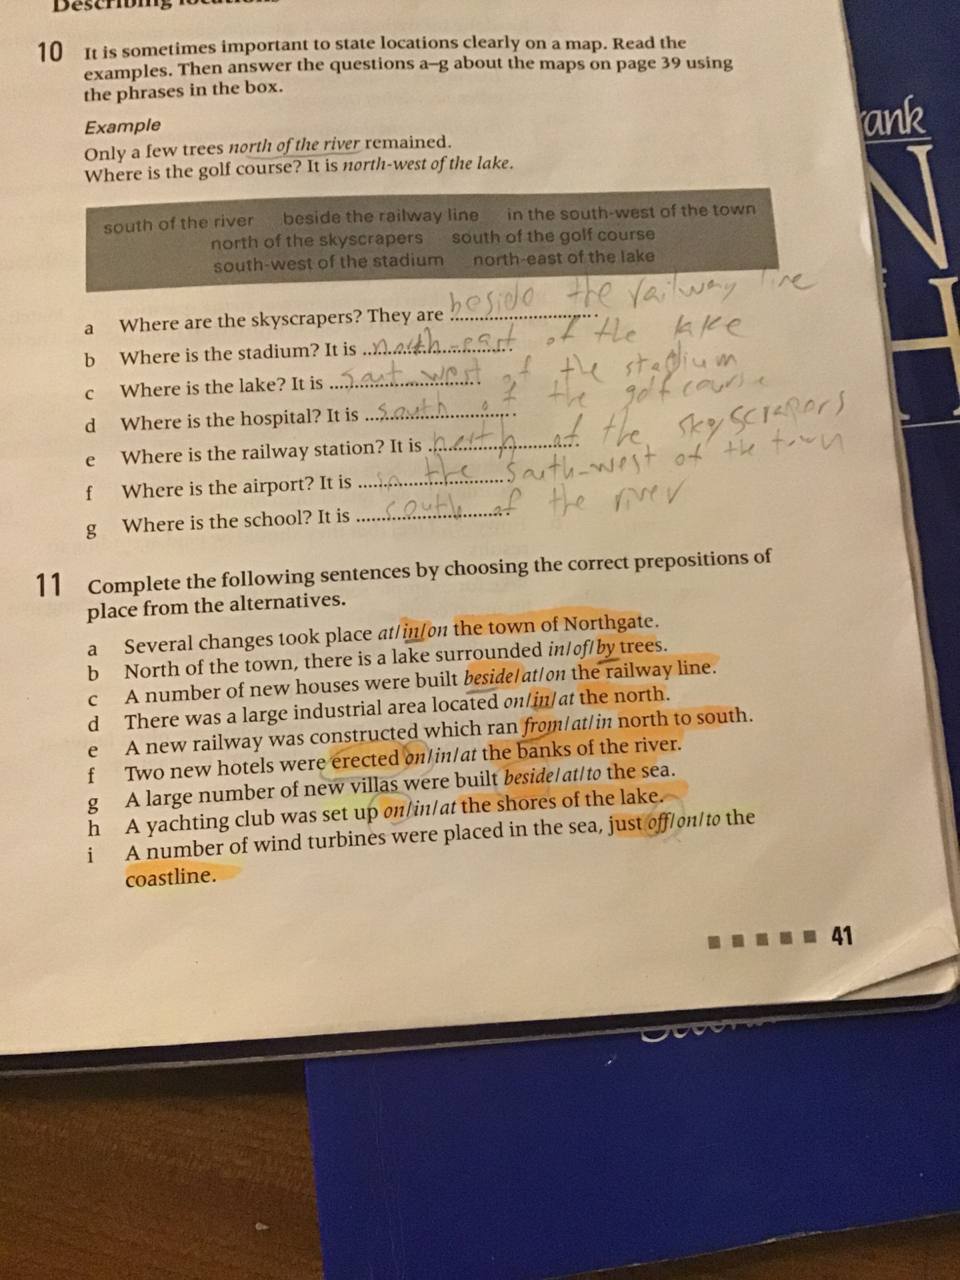 Describing locations
10 It is sometimes important to state locations clearly on a map. Read the
examples. Then answer the questions a–g about the maps on page 39 using
the phrases in the box.
Example
Only a few trees north of the river remained.
Where is the golf course? It is north-west of the lake.
south of the river beside the railway line in the south-west of the town
north of the skyscrapers south of the golf course
south-west of the stadium north-east of the lake
a Where are the skyscrapers? They are beside the railway line
b Where is the stadium? It is north-east of the lake
c Where is the lake? It is saut west of the stadium
d Where is the hospital? It is south of the golf course
e Where is the railway station? It is north of the skyscrapers
f Where is the airport? It is in the south-west of the town
g Where is the school? It is south of the river
11 Complete the following sentences by choosing the correct prepositions of
place from the alternatives.
a Several changes took place at/in/on the town of Northgate.
b North of the town, there is a lake surrounded in/of/by trees.
c A number of new houses were built beside/at/on the railway line.
d There was a large industrial area located on/in/at the north.
e A new railway was constructed which ran from/at/in north to south.
f Two new hotels were erected on/in/at the banks of the river.
g A large number of new villas were built beside/at/to the sea.
h A yachting club was set up on/in/at the shores of the lake.
i A number of wind turbines were placed in the sea, just off/on/to the
coastline.
41